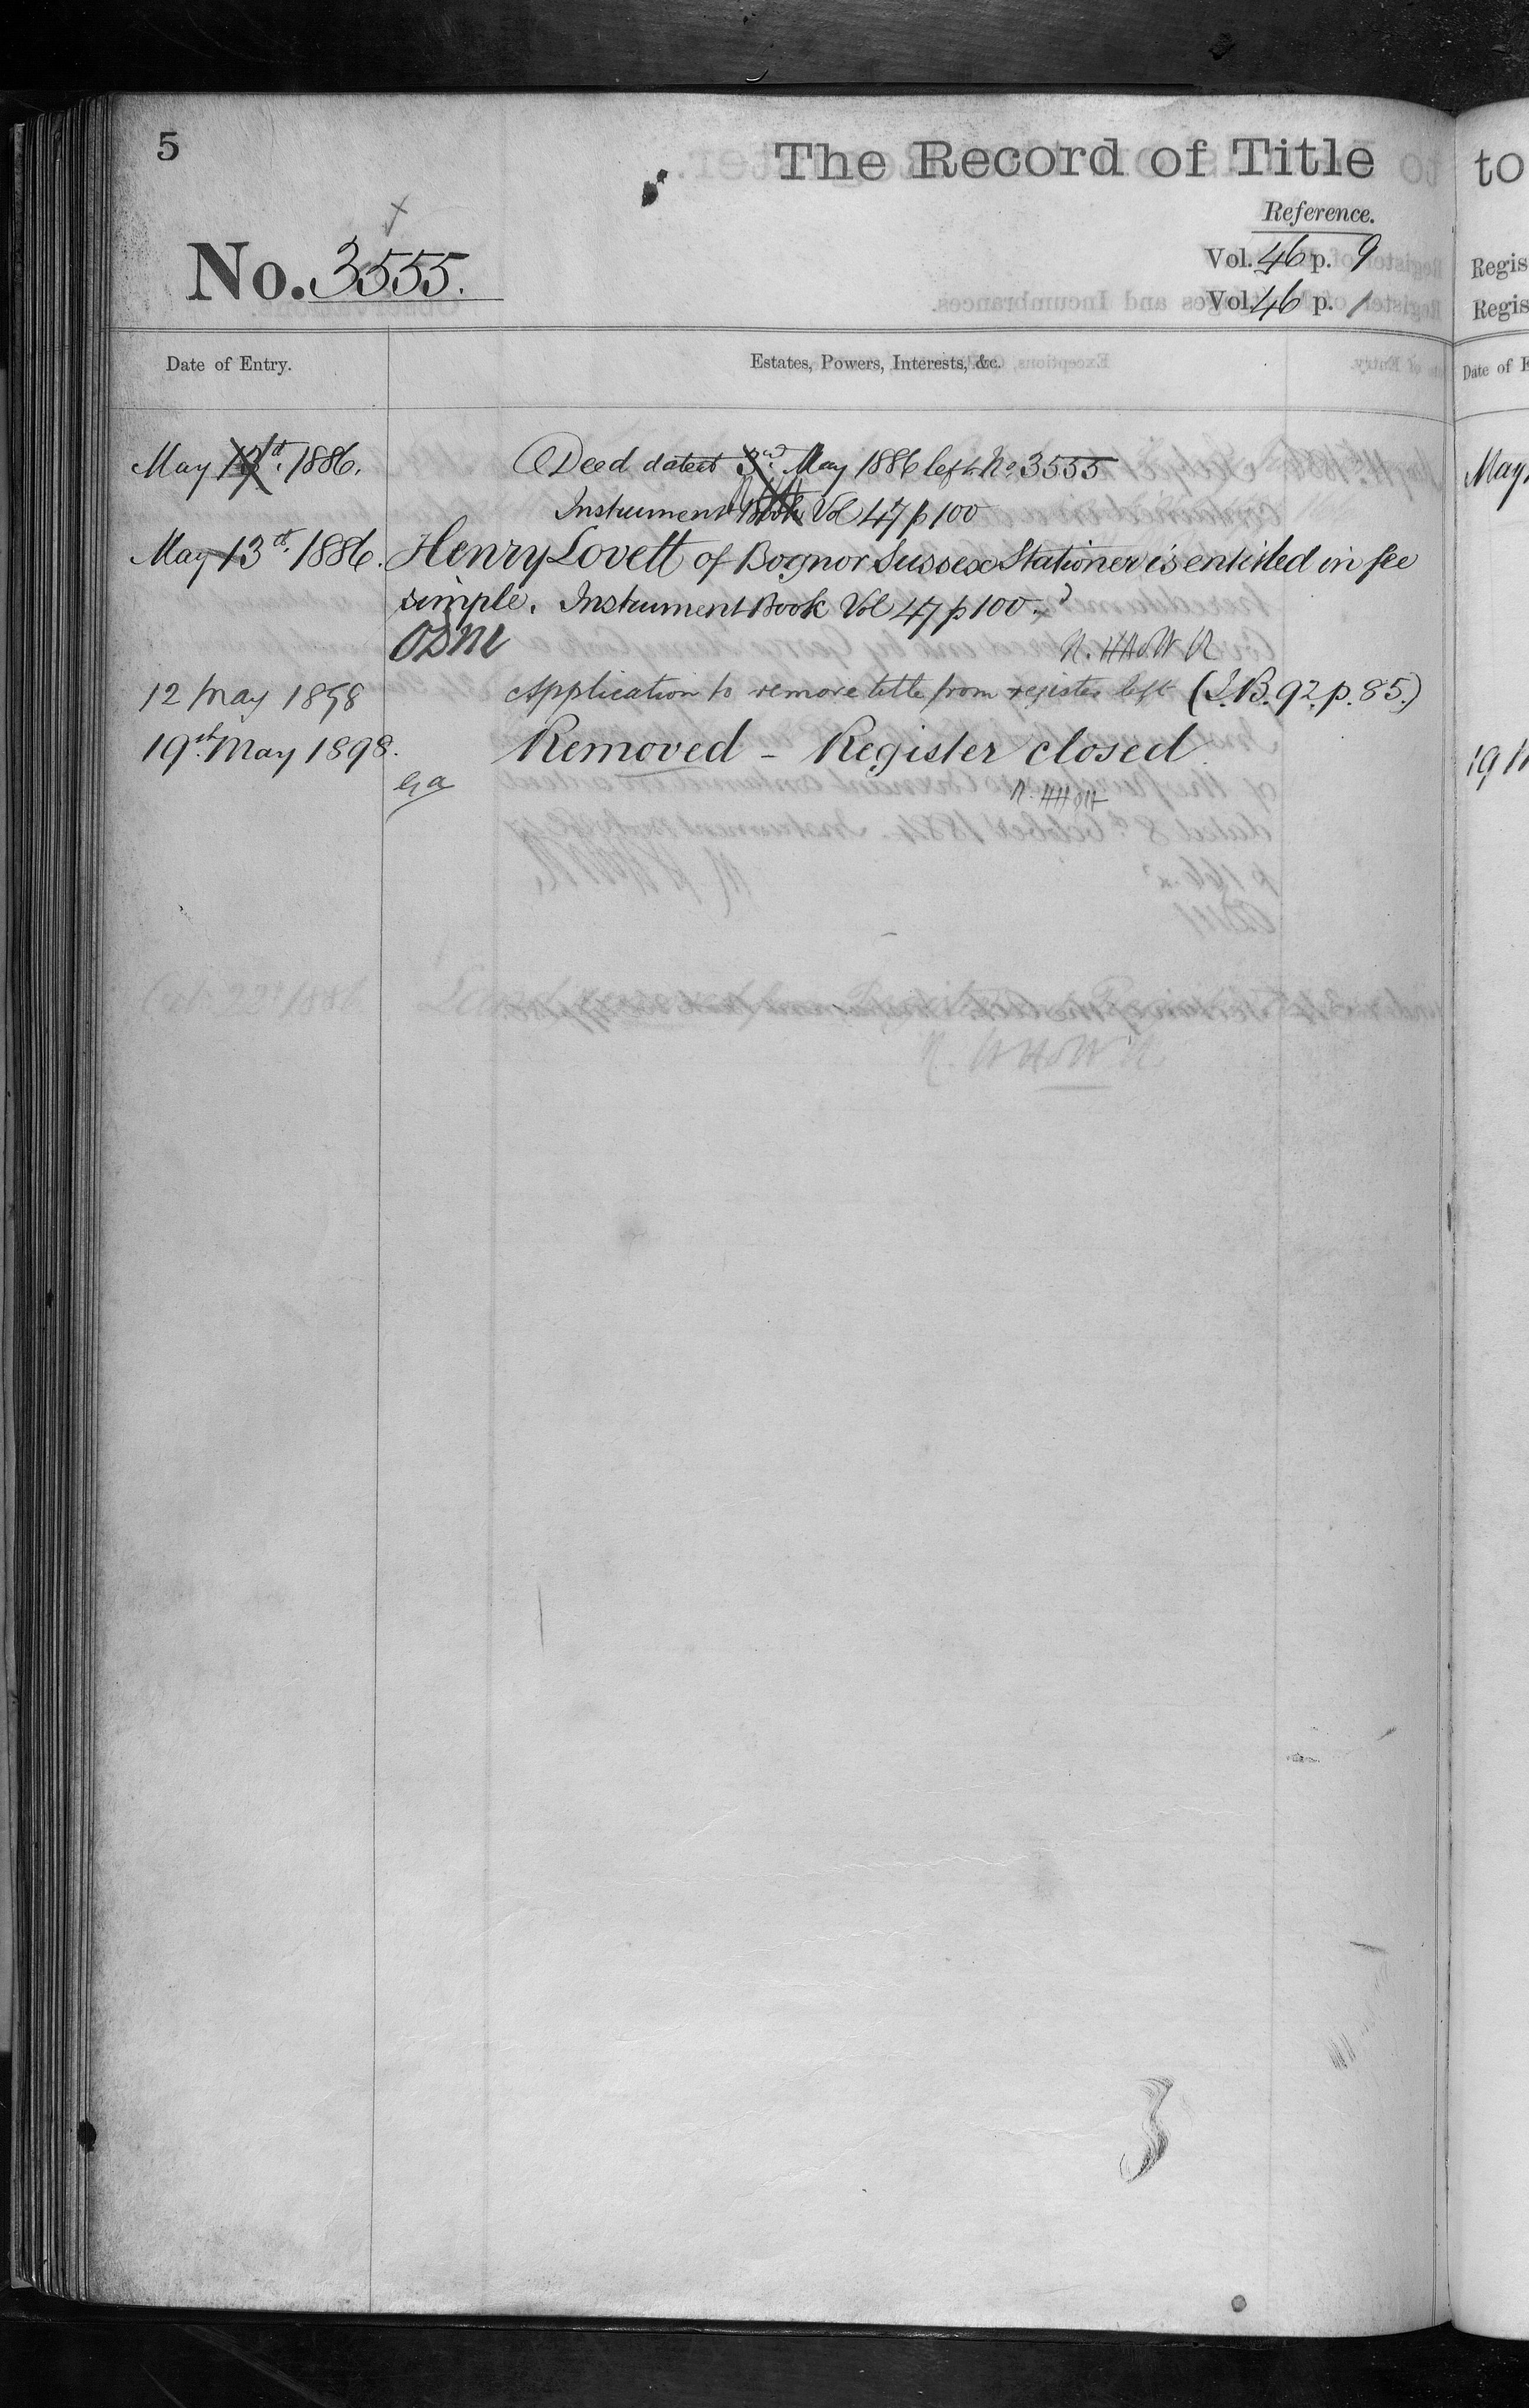 5
The Record of Title
to
Reference.
No. 3555.
Vol. 46 p. 9
Vol. 46 p. 1
Regis
Regis
Date of Entry.
Estates, Powers, Interests, &c.
Date of E
May 1886.
Deed dated 3rd May 1886 left No 3555
Instrument Book Vol 47 p 100
May
May 13th 1886.
Henry Lovett of Bognor Sussex Stationer is entitled in fee
simple. Instrument Book Vol 47 p 100
12 May 1898
Application to remove title from register left (I.B. 92. p. 85.)
19th May 1898.
Removed - Register closed
19